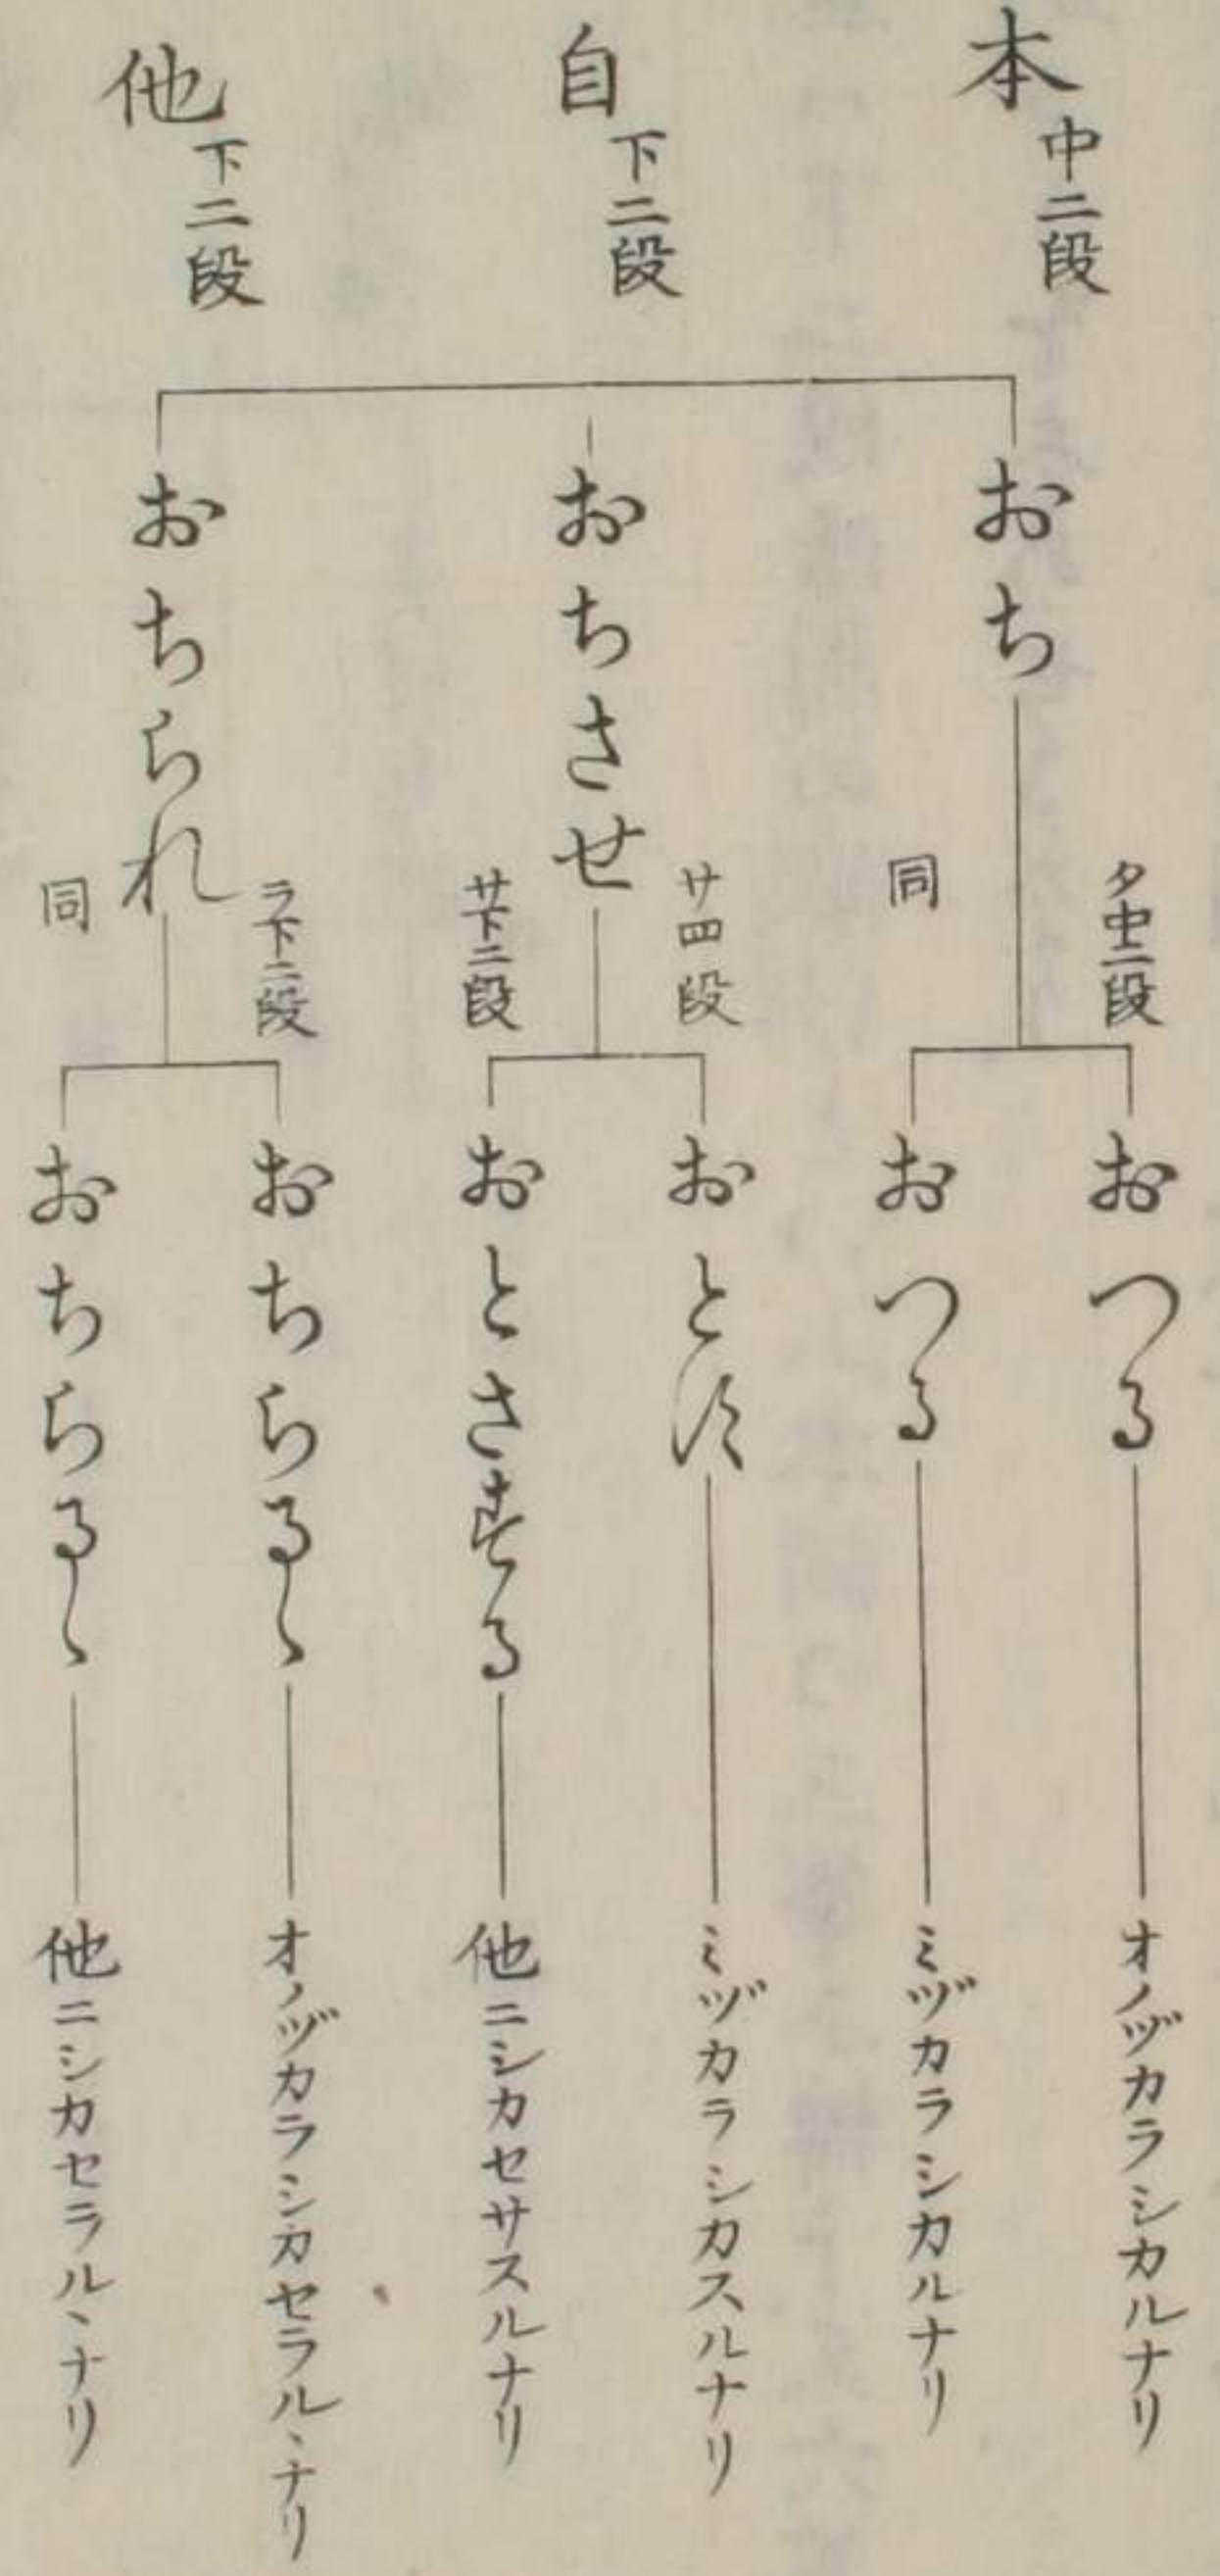 本 中二段
おち
タ中二段
おつる
オノヅカラシカルナリ
同
おつる
ミヅカラシカルナリ
自 下二段
おちさせ
サ四段
おとす
ミヅカラシカスルナリ
サ下二段
おとさする
他ニシカセサスルナリ
他 下二段
おちられ
ラ下二段
おちらるゝ
オノヅカラシカセラルヽナリ
同
おちらるゝ
他ニシカセラルヽナリ